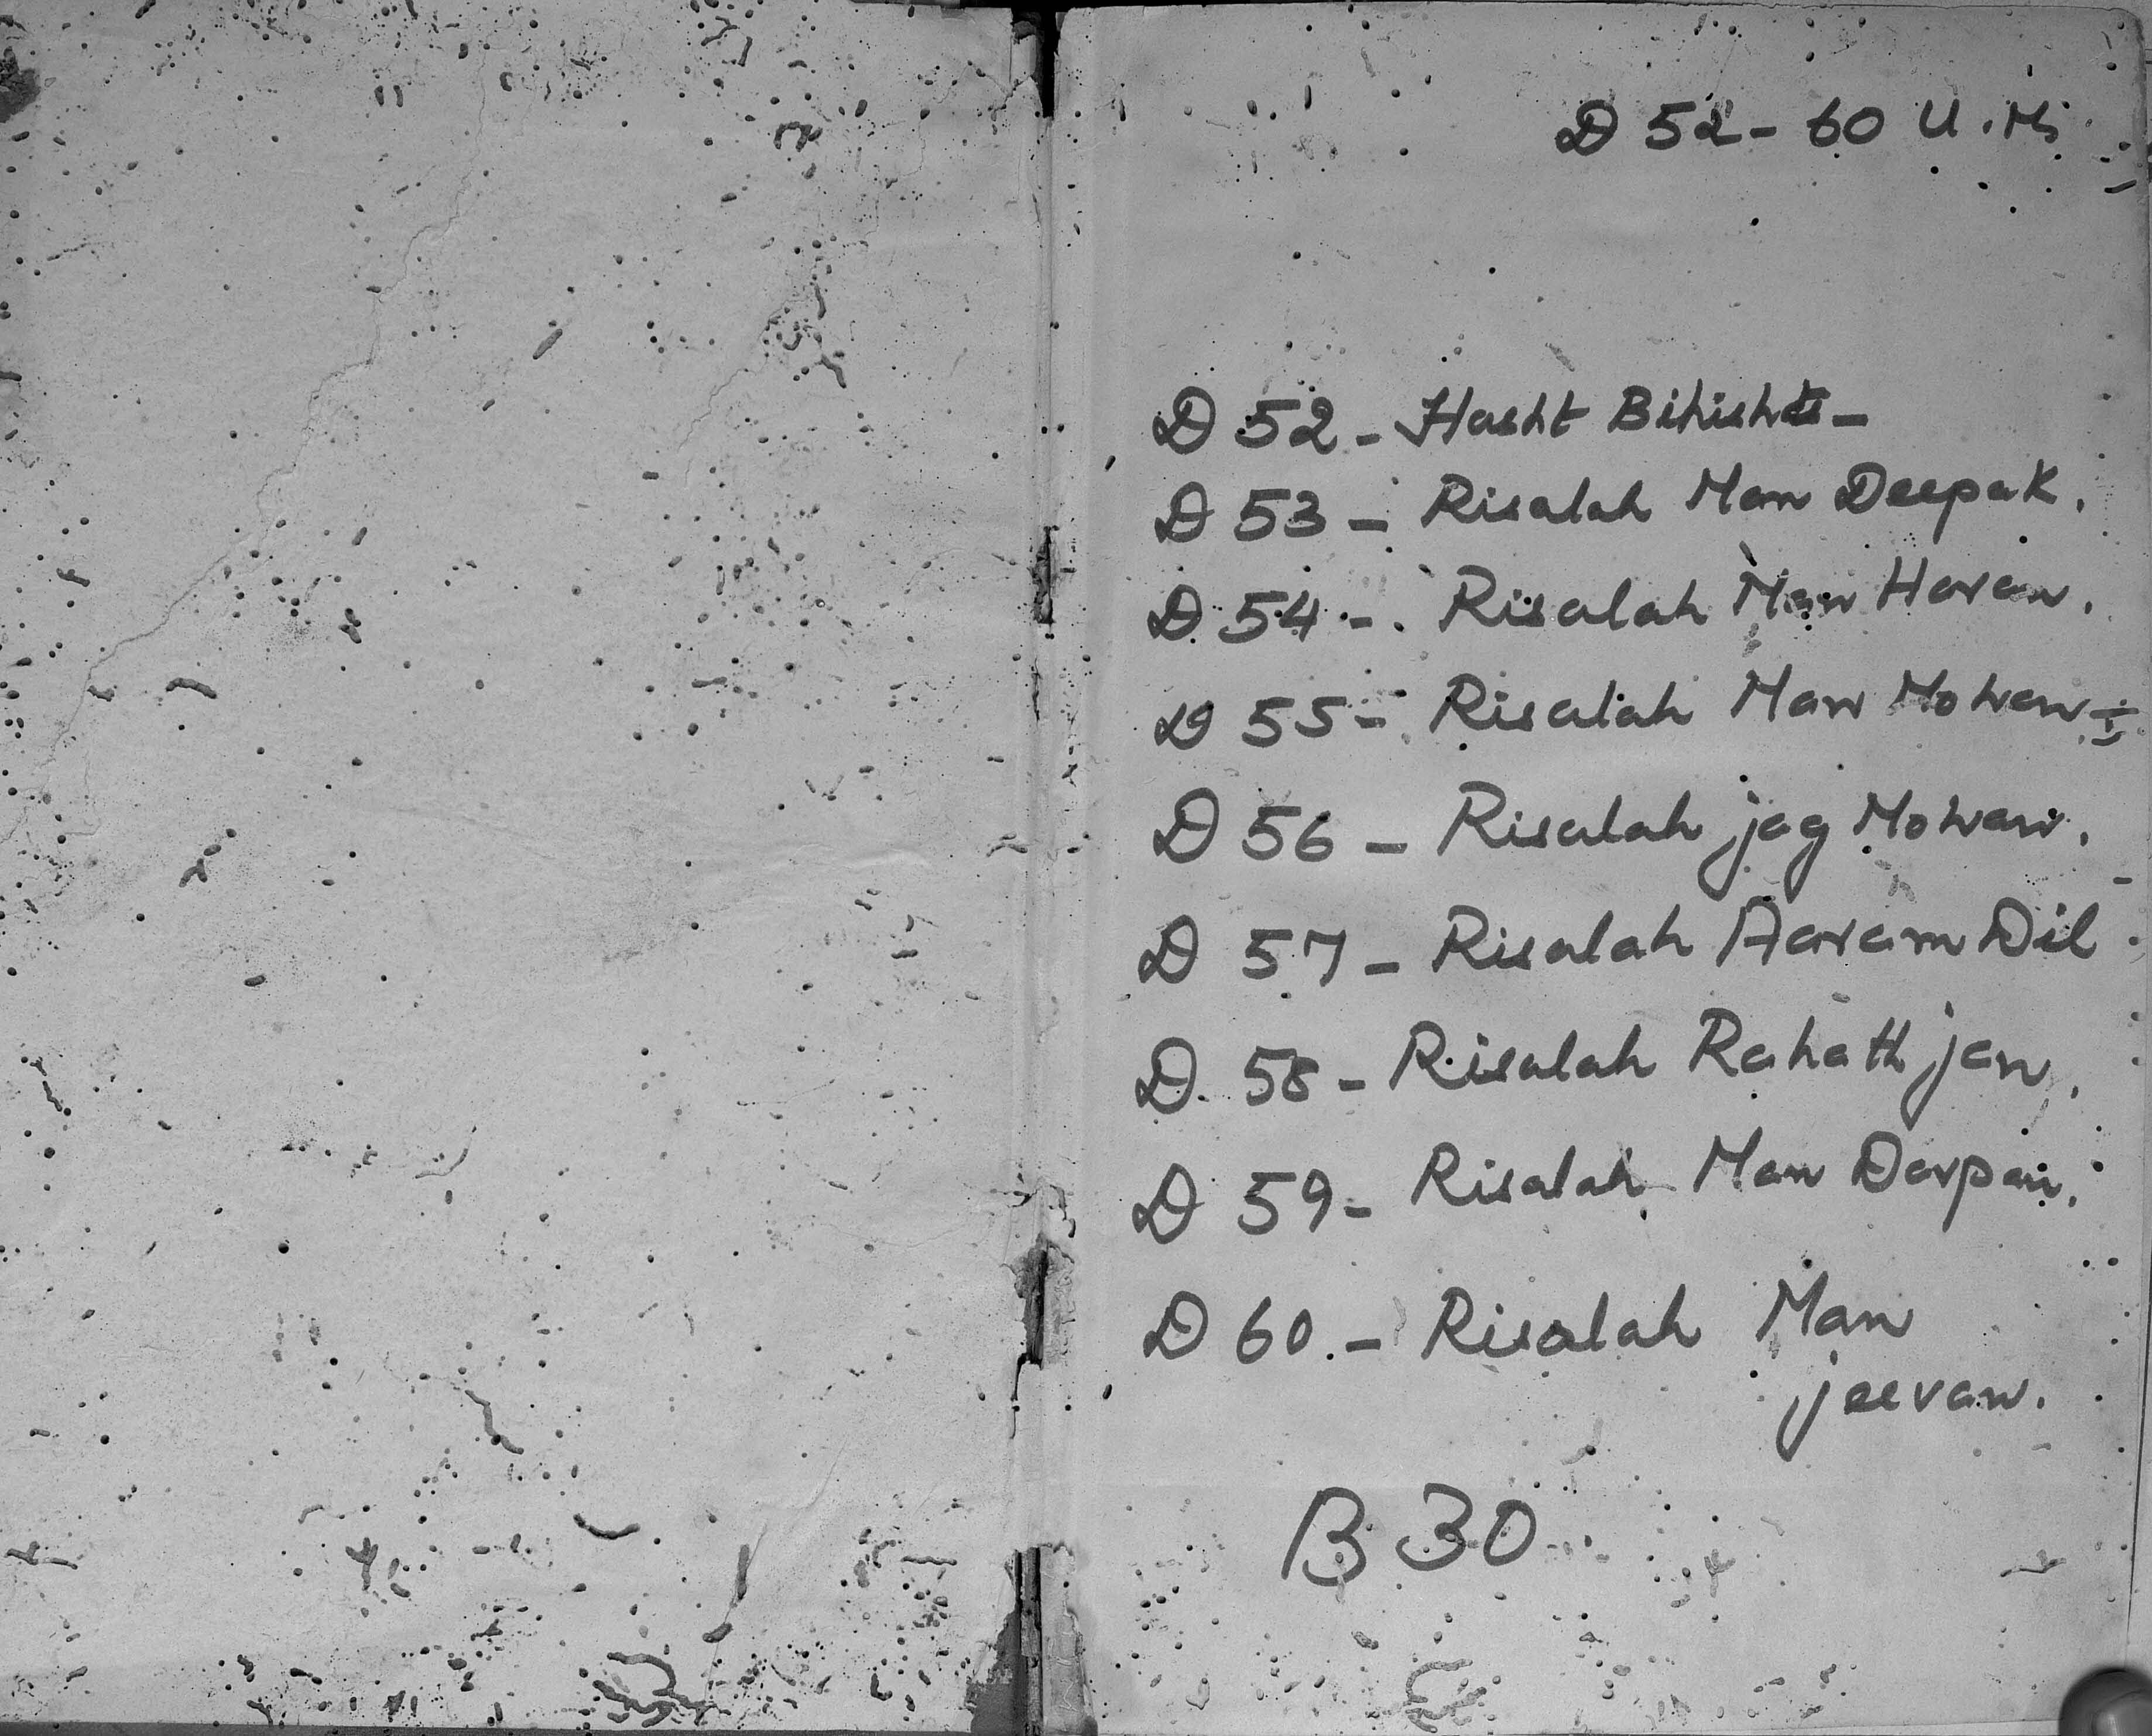 D 52 - 60 U. Ms
D 52 - Hasht Bihisht -
D 53 - Risalah Man Deepak.
D 54 - Risalah Man Haran.
D 55 - Risalah Man Mohan I
D 56 - Risalah jag Mohan.
D 57 - Risalah Aaram Dil
D. 58 - Risalah Rahatt jan.
D 59 - Risalah Man Darpan.
D 60. - Risalah Man
jeevan.
B 30